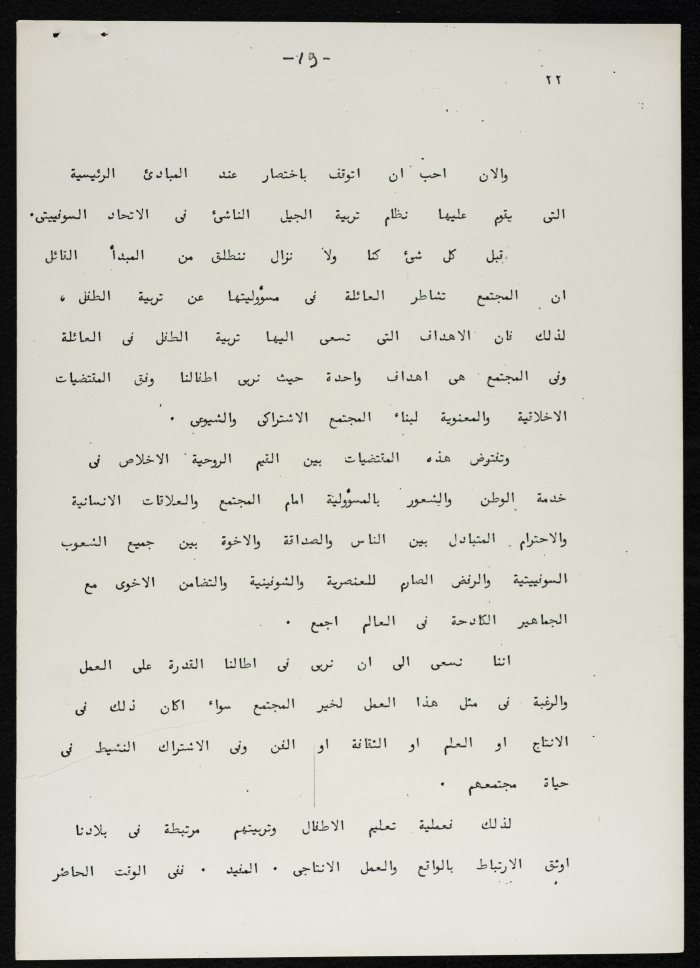 -19-
٢٢
والان احب ان اتوقف باختصار عند المبادئ الرئيسية
التى يقوم عليها نظام تربية الجيل الناشئ فى الاتحاد السوفييتى.
قبل كل شئ كنا ولا نزال ننطلق من المبدأ القائل
ان المجتمع تشاطر العائلة فى مسؤوليتها عن تربية الطفل ،
لذلك فان الاهداف التى تسعى اليها تربية الطفل فى العائلة
وفى المجتمع هى اهداف واحدة حيث نربى اطفالنا وفق المقتضيات
الاخلاقية والمعنوية لبناء المجتمع الاشتراكى والشيوعى .
وتفترض هذه المقتضيات بين القيم الروحية الاخلاص فى
خدمة الوطن والشعور بالمسؤولية امام المجتمع والعلاقات الانسانية
والاحترام المتبادل بين الناس والصداقة والاخوة بين جميع الشعوب
السوفييتية والرفض الصارم للعنصرية والشوفينية والتضامن الاخوى مع
الجماهير الكادحة فى العالم اجمع .
اننا نسعى الى ان نربى فى اطالنا القدرة على العمل
والرغبة فى مثل هذا العمل لخير المجتمع سواء اكان ذلك فى
الانتاج او العلم او الثقافة او الفن وفى الاشتراك النشيط فى
حياة مجتمعهم .
لذلك فعملية تعليم الاطفال وتربيتهم مرتبطة فى بلادنا
اوثق الارتباط بالواقع والعمل الانتاجى . المفيد . ففى الوقت الحاضر